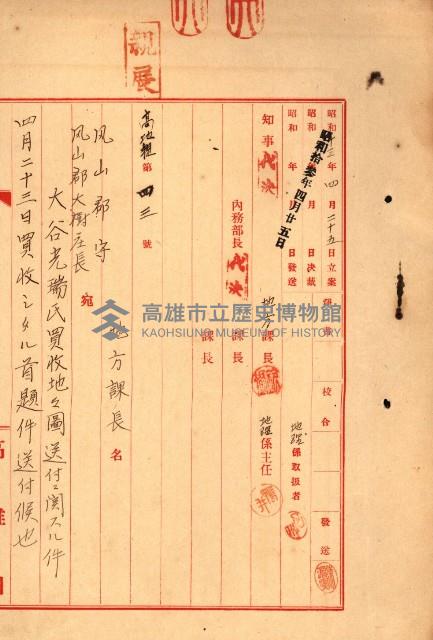 親展
昭和 年 四月二十五日立案
昭和 年 月 日決裁
昭和 年 月 日發送
昭和拾參年四月廿五日
校合
發送
地理係取扱者
知事 代決
內務部長 代決
地方課長
地理係主任
課長
課長
高地理第四三號
鳳山郡守
鳳山郡大樹庄長
宛
地方課長名
大谷光瑞氏買收地之圖送付ニ関スル件
四月二十三日買收シタル首題件送付候也
高雄州
高雄市立歷史博物館
KAOHSIUNG MUSEUM OF HISTORY